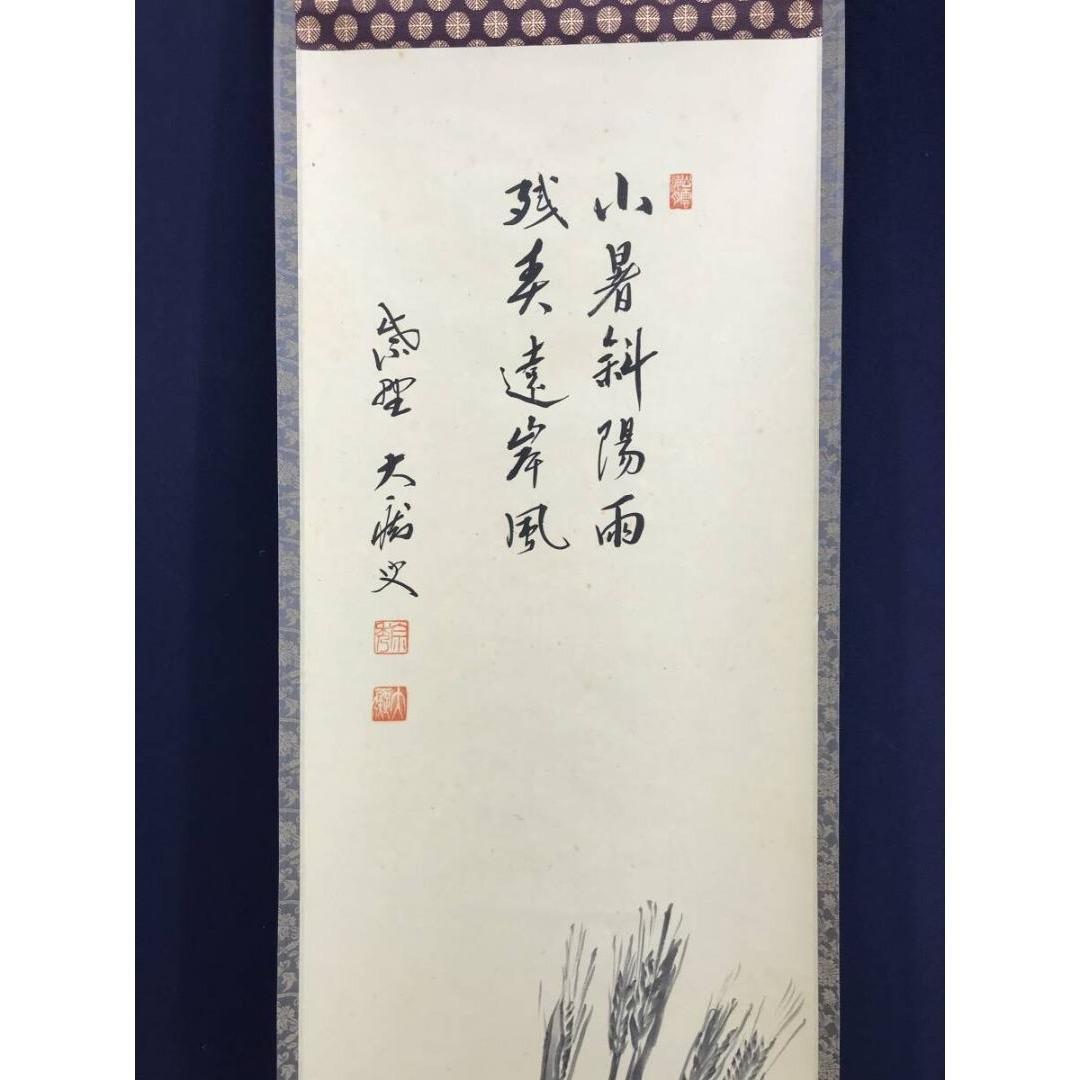 小暑斜陽雨
残麦遠岸風
紫野 大 叟